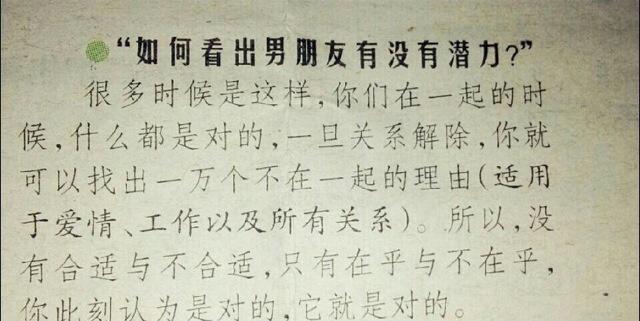 “如何看出男朋友有没有潜力？”
很多时候是这样，你们在一起的时
候，什么都是对的，一旦关系解除，你就
可以找出一万个不在一起的理由（适用
于爱情、工作以及所有关系）。所以，没
有合适与不合适，只有在乎与不在乎，
你此刻认为是对的，它就是对的。